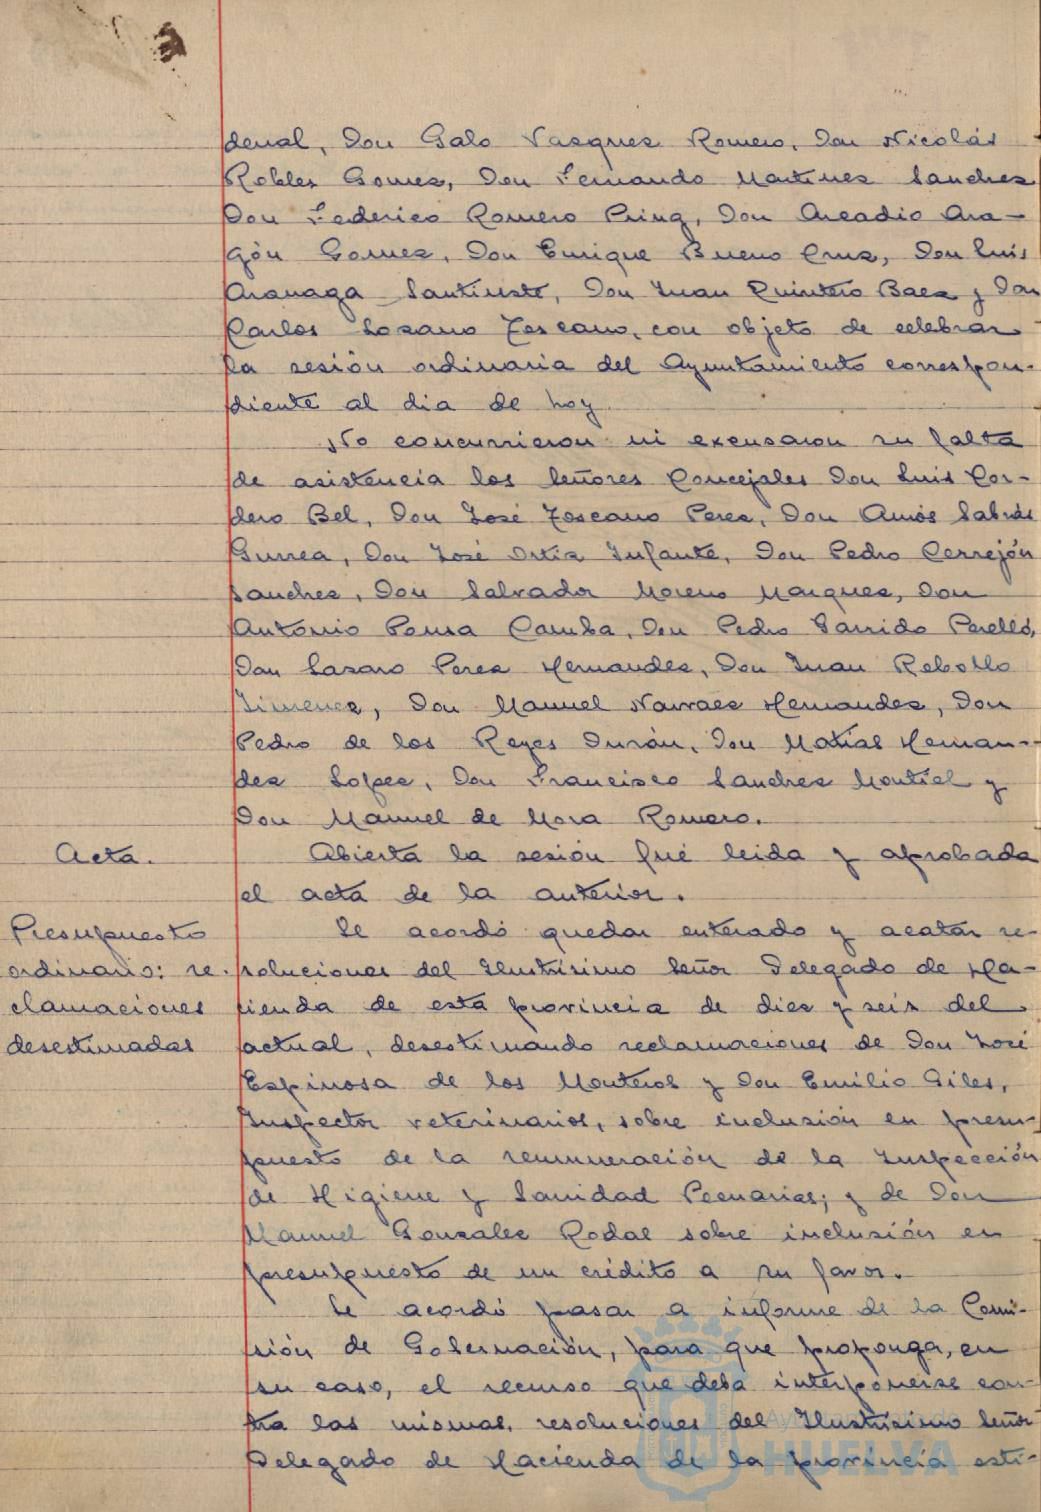 denal, Don Galo Vazquez Romero, Don Nicolás
Robles Gomez, Don Fernando Martinez Sanchez
Don Federico Romero Pring, Don Arcadio Ara-
gón Gomez, Don Enrique Bueno Cruz, Don Luis
Aranaga Santiuste, Don Juan Quintero Baez y Don
Carlos Lozano Toscano, con objeto de celebrar
la sesión ordinaria del Ayuntamiento correspon-
diente al dia de hoy
No concurrieron ni excusaron su falta
de asistencia los Señores Concejales Don Luis Cor-
dero Bel, Don José Toscano Perez, Don Amós Sabrás
Gurrea, Don José Ortiz Infante, Don Pedro Cerrejón
Sanchez, Don Salvador Moreno Marquez, Don
Antonio Pousa Camba, Don Pedro Garrido Perelló,
Don Lazaro Perez Hernandez, Don Juan Rebollo
Jimenez, Don Manuel Narvaez Hernandez, Don
Pedro de los Reyes Durán, Don Matías Hernan-
dez Lopez, Don Francisco Sanchez Montiel y
Don Manuel de Mora Romero.
Acta.
Abierta la sesión fué leida y aprobada
el acta de la anterior.
Presupuesto
ordinario: re-
clamaciones
desestimadas
Se acordó quedar enterado y acatar re-
soluciones del Ilustrisimo Señor Delegado de Ha-
cienda de esta provincia de diez y seis del
actual, desestimando reclamaciones de Don José
Espinosa de los Monteros y Don Emilio Giles,
Inspector veterinarios, sobre inclusión en presu-
puesto de la remuneración de la Inspección
de Higiene y Sanidad Pecuarias; y de Don
Manuel Gonzalez Rodal sobre inclusión en
presupuesto de un crédito a su favor.
Se acordó pasar a informe de la Comi-
sión de Gobernación, para que proponga, en
su caso, el recurso que deba interponerse con-
tra las mismas, resoluciones del Ilustrisimo Señor
Delegado de Hacienda de la provincia esti-
HUELVA